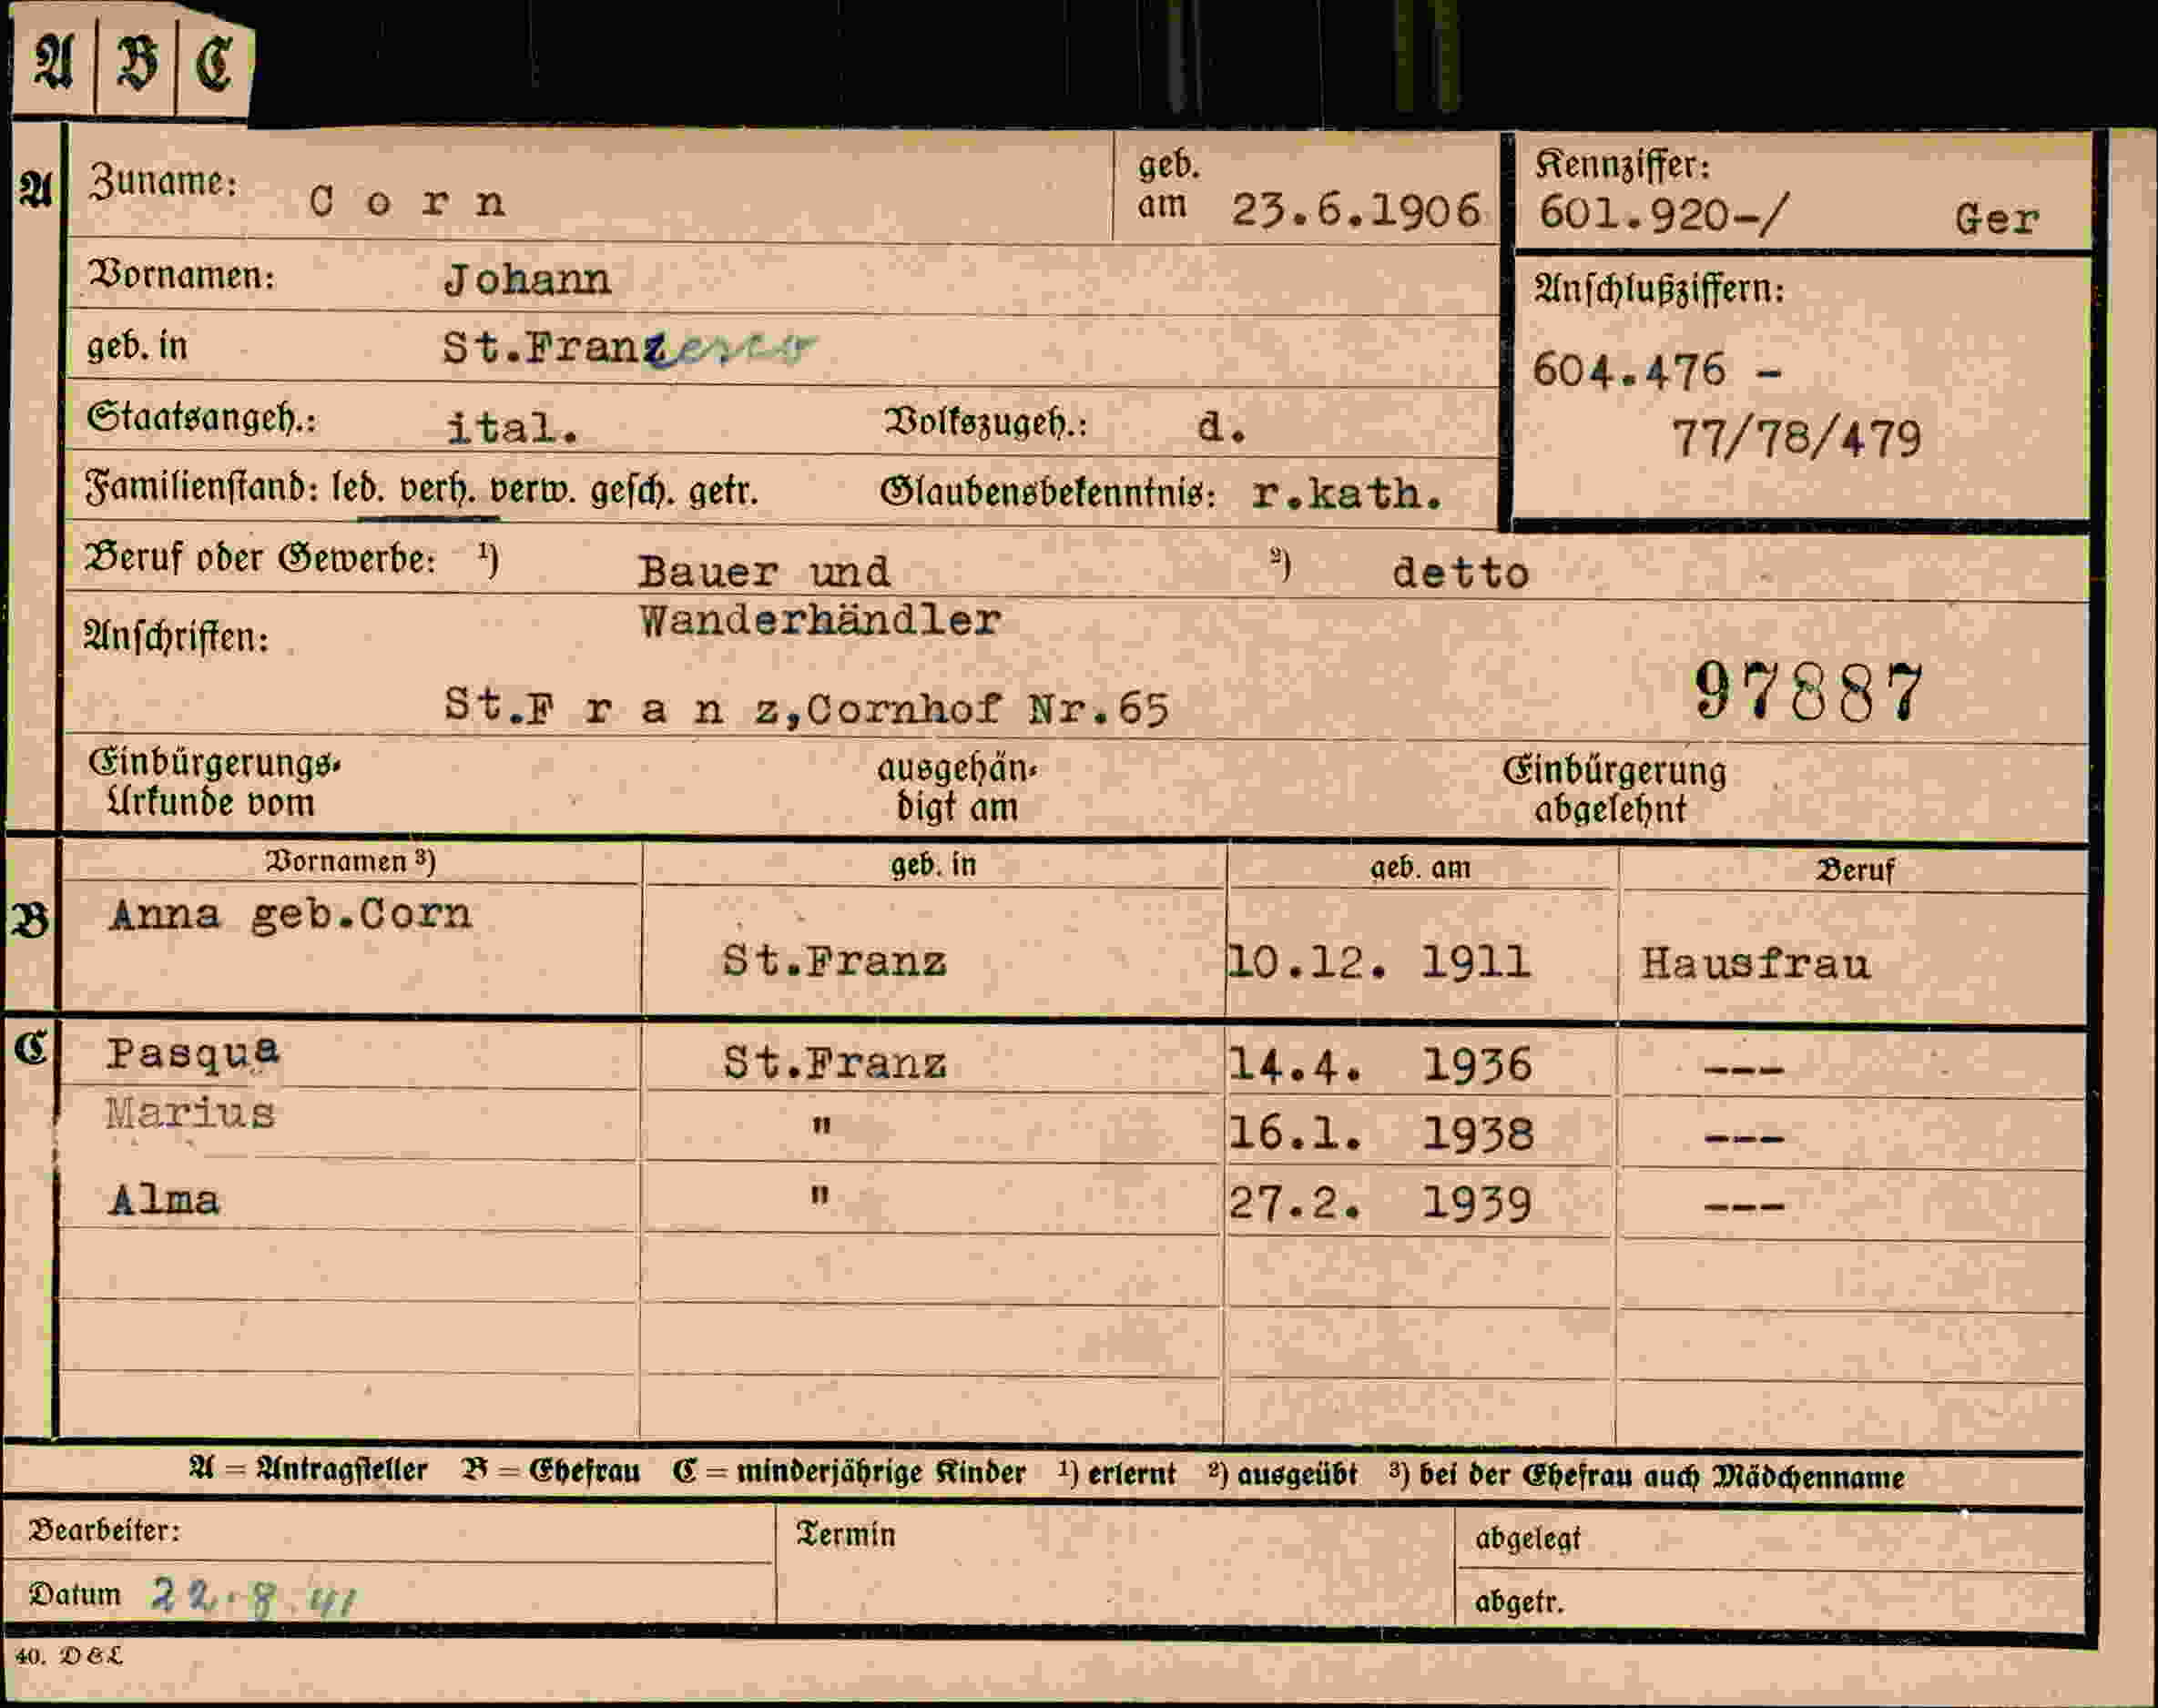 A B C
A Zuname: Corn geb. am 23.6.1906 Kennziffer: 601.920-/ Ger
Vornamen: Johann Anschlußziffern:
geb. in St.Franzesco 604.476 -
Staatsangeh.: ital. Volkszugeh.: d. 77/78/479
Familienstand: led. verh. verw. gesch. getr. Glaubensbekenntnis: r.kath.
Beruf oder Gewerbe: ¹) Bauer und ²) detto
Wanderhändler
Anschriften:
St.F r a n z,Cornhof Nr.65 97887
Einbürgerungs- ausgehän- Einbürgerung
Urkunde vom digt am abgelehnt
Vornamen ³) geb. in geb. am Beruf
B Anna geb.Corn
St.Franz 10.12. 1911 Hausfrau
C Pasqua St.Franz 14.4. 1936 ---
Marius " 16.1. 1938 ---
Alma " 27.2. 1939 ---
A = Antragsteller B = Ehefrau C = minderjährige Kinder ¹) erlernt ²) ausgeübt ³) bei der Ehefrau auch Mädchenname
Bearbeiter: Termin abgelegt
Datum 22.8.41 abgetr.
40. D & L